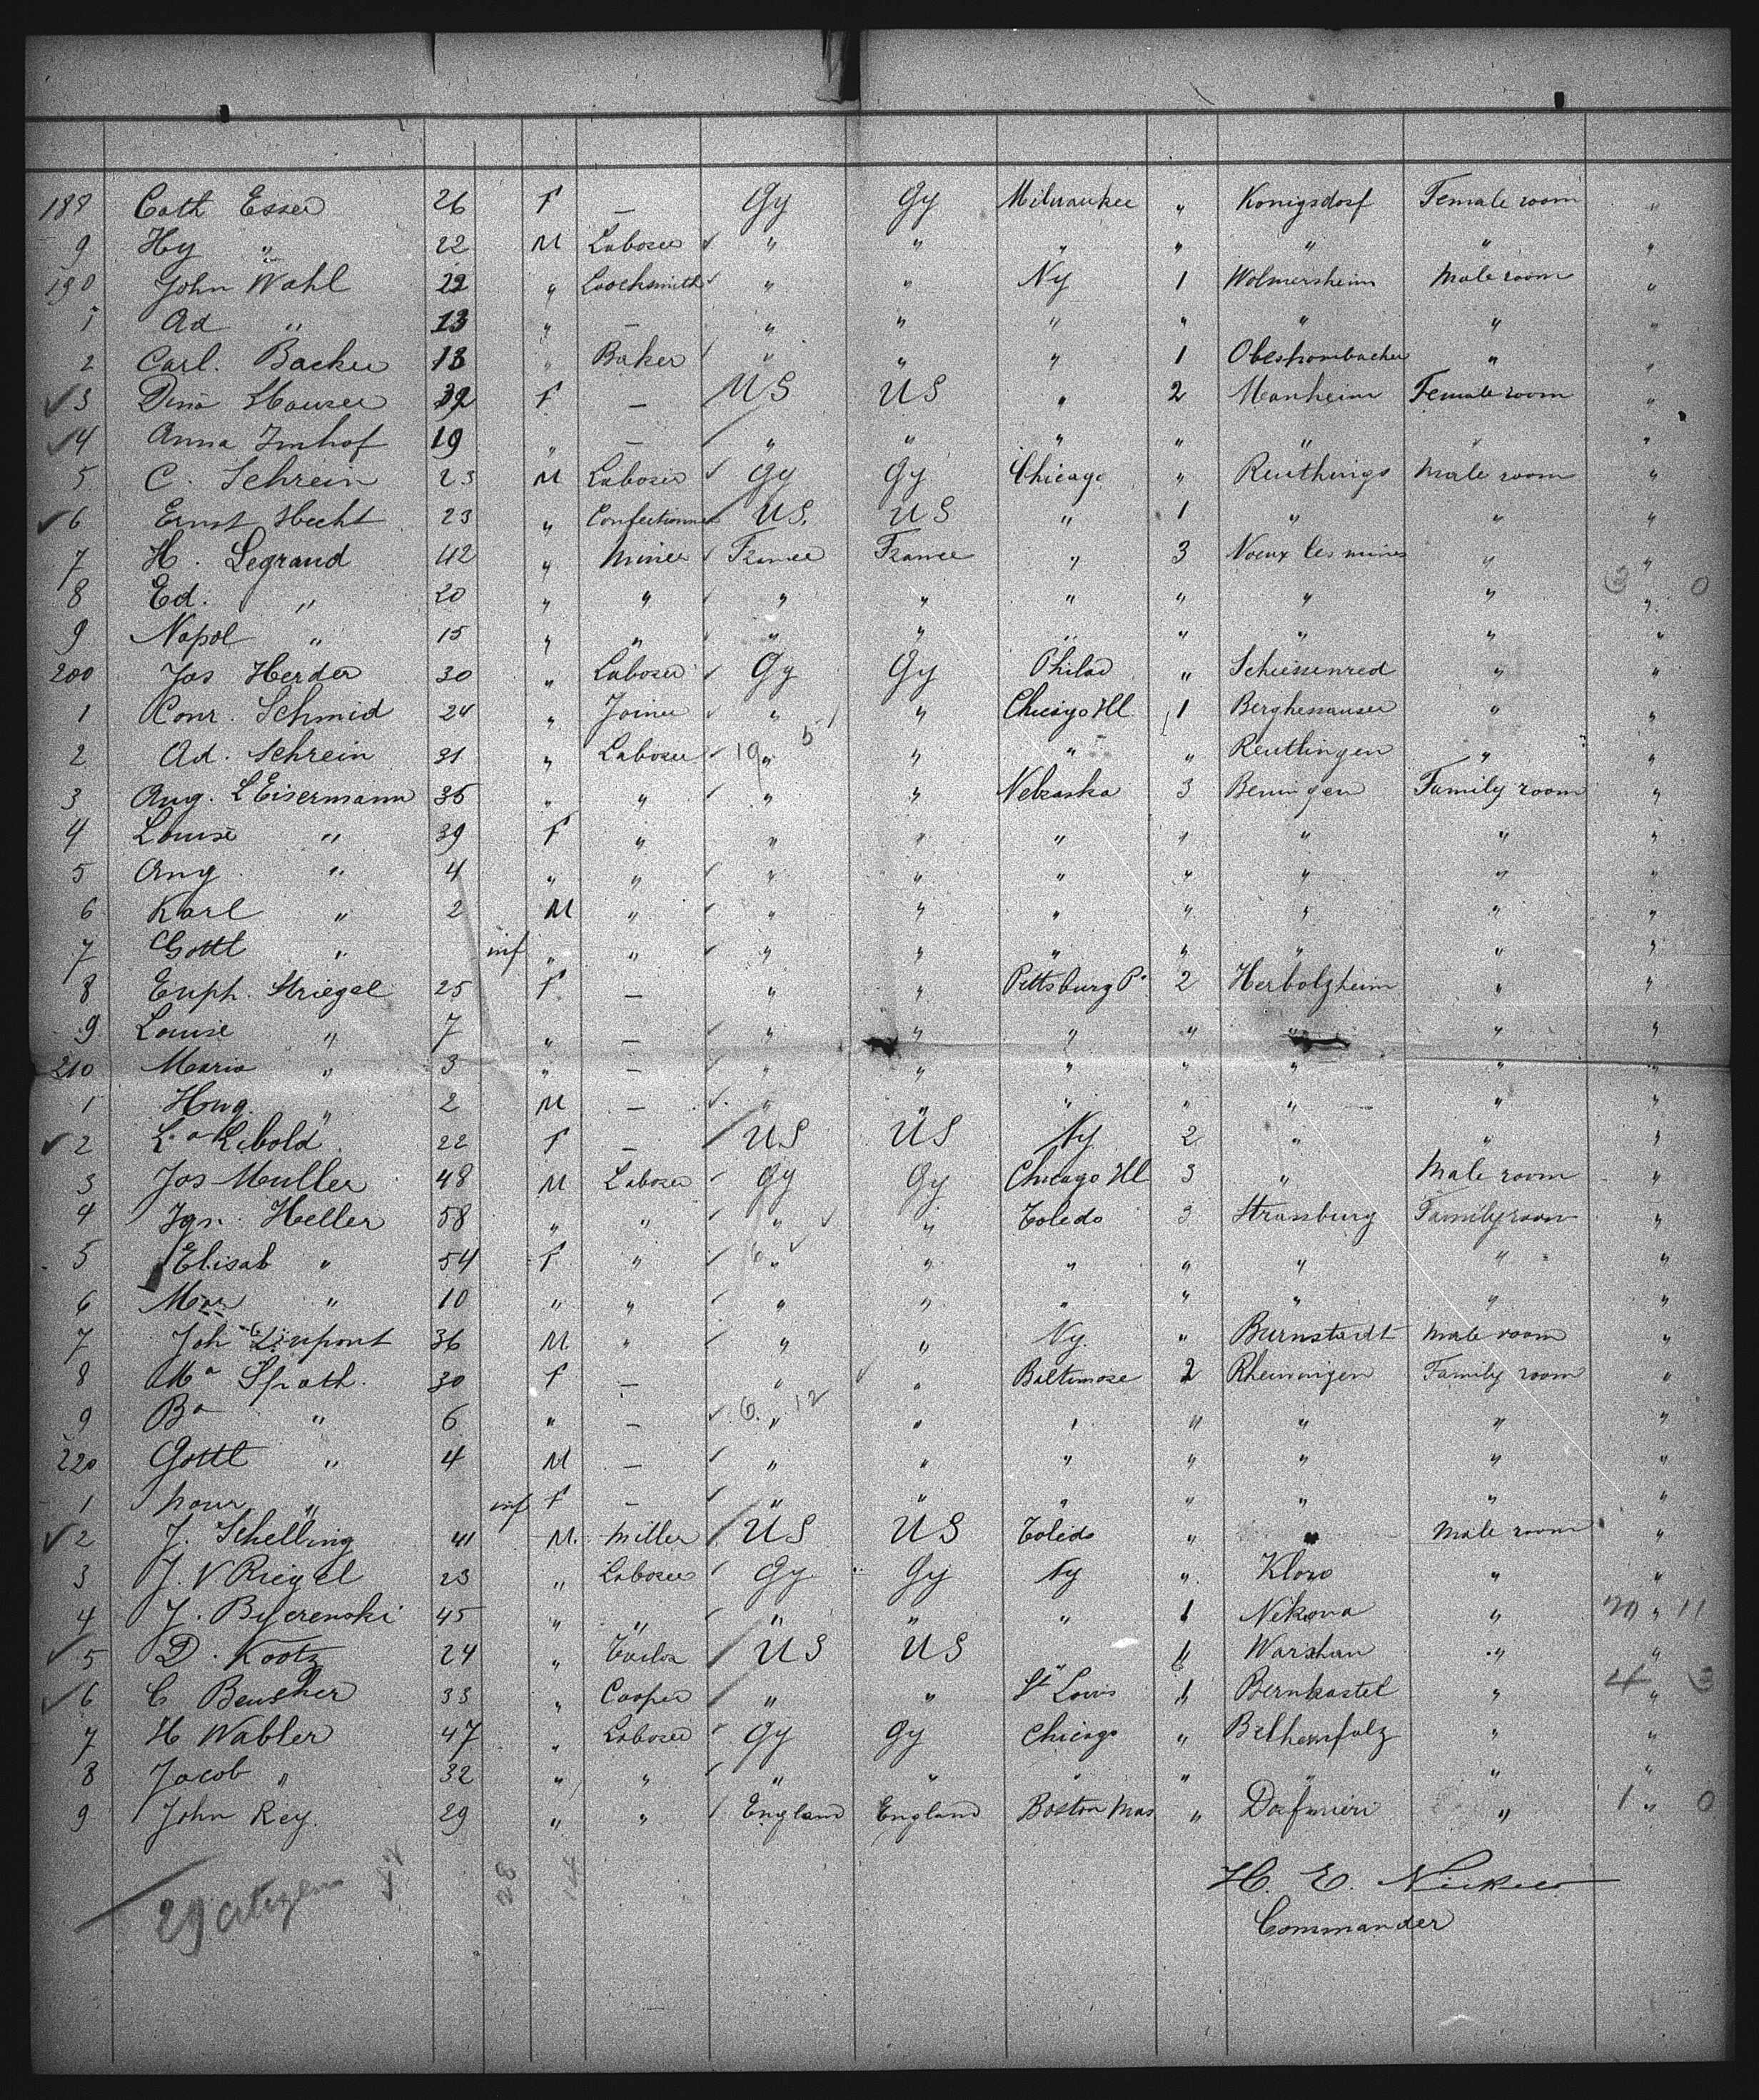 188 Cath Esser 26 F — Gy Gy Milwaukee " Konigsdorf Female room "
9 Hy " 22 M Laborer " " " " " " "
190 John Wahl 22 " Loochsmith " " Ny 1 Wolmersheim Male room "
1 Ad " 13 " — " " " " " " "
2 Carl. Backer 18 " Baker " " " 1 "
3 Dina Hauser 32 F — US US " 2 Manheim Female room "
4 Anna Imhof 19 " — " " " " " " "
5 C. Schrein 23 M Laborer Gy Gy Chicago " Reuthings Male room "
6 Ernst Hecht 23 " Confectionner US. US " 1 " " "
7 H. Legrand 42 " Miner France France " 3 Noeux les mines " "
8 Ed. " 20 " " " " " " " " " 3 0
9 Napol " 15 " " " " " " " " "
200 Jos Herder 30 " Laborer Gy Gy Philad " Schiessenred " "
1 Conr. Schmid 24 " Joiner " " Chicago Ill. 1 Berghessauser " "
2 Ad. Schrein 31 " Laborer 19 " 5 " " " Reutlingen " "
3 Aug. L Eisermann 35 " " " " Nebraska 3 Beningen Family room "
4 Louise " 39 F " " " " " " " "
5 Aug " 4 " " " " " " " " "
6 Karl " 2 M " " " " " " " "
7 Gottl " inf " " " " " " " " "
8 Euph. Striegel 25 F — " " Pittsburg Pa 2 Herbolzheim " "
9 Louise " 7 " — " " " " " " "
210 Maria " 3 " — " " " " " " "
1 Hug " 2 M — " " " " " " "
2 La Libold 22 F — US US Ny 2 " " "
3 Jos Muller 48 M Laborer Gy Gy Chicago Ill 3 " Male room "
4 Ign. Heller 58 " " " " Toledo 3 Strassburg Family room "
5 Elisab " 54 F " 6 " " " " " " "
6 Mar " 10 " " " " " " " " "
7 Joh Limpont 36 M " " " Ny. " Burnstadt Male room "
8 Ma Spath. 30 F — " " Baltimore 2 Rheiningen Family room "
9 Ba " 6 " — 6. " 12 " " " " " "
220 Gottl " 4 M — " " " " " " "
1 " inf F — " " " " " " "
2 J. Schelling 41 M. Miller US US Toledo " " Male room "
3 J. V Riegel 23 " Laborer Gy Gy Ny " Klow " "
4 J. Byerenski 45 " " " " " 1 Nekova " 20 " 11
5 D. Kootz 24 " Tailor US US " " Warshau " "
6 C Beusher 33 " Cooper " " St Louis 1 Bernkastel " 4 " 3
7 H Wabler 47 " Laborer Gy Gy Chicago " " "
8 Jacob " 32 " " " " " " " " "
9 John Rey. 29 " " England England Boston Mas " Dafurieri " 1 " 0
29 citizens
H. E. Nickels
Commander